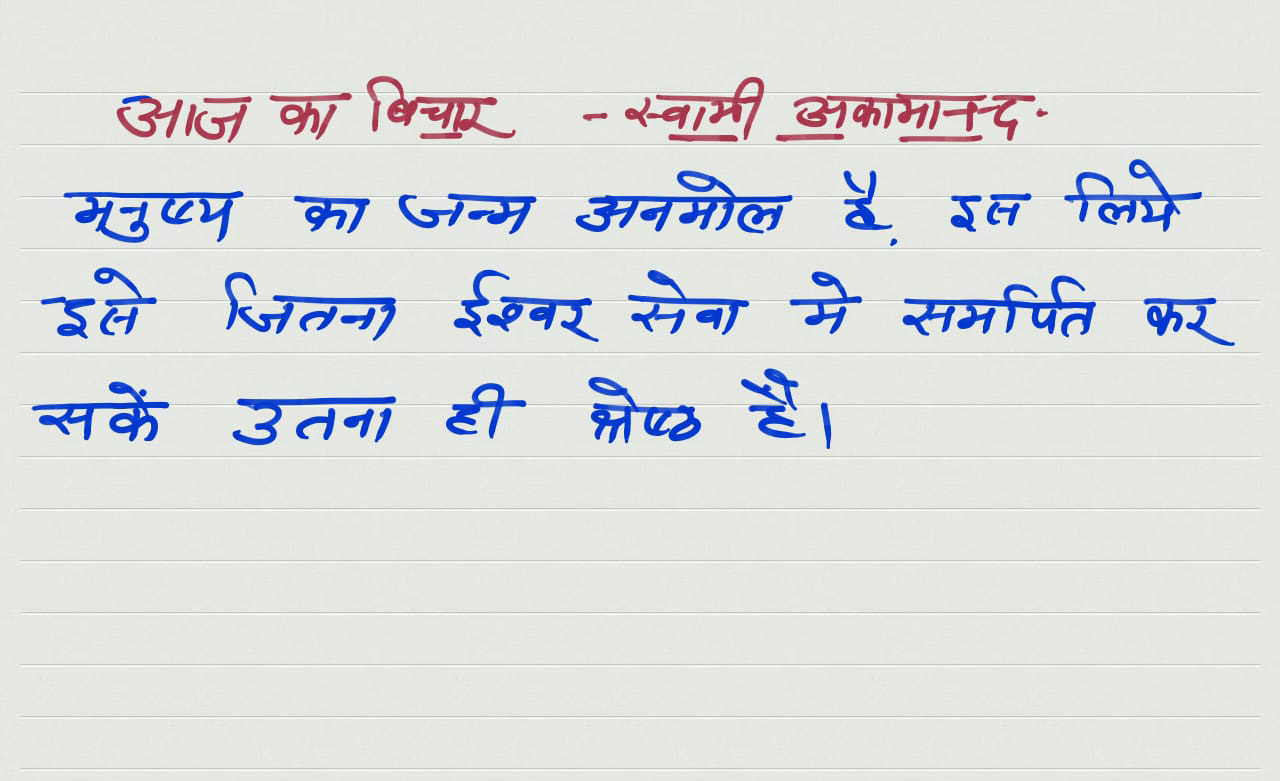 आज का विचार - स्वामी अकामानन्द.
मनुष्य का जन्म अनमोल है. इस लिये
इसे जितना ईश्वर सेवा मे समर्पित कर
सकें उतना ही श्रेष्ठ है।